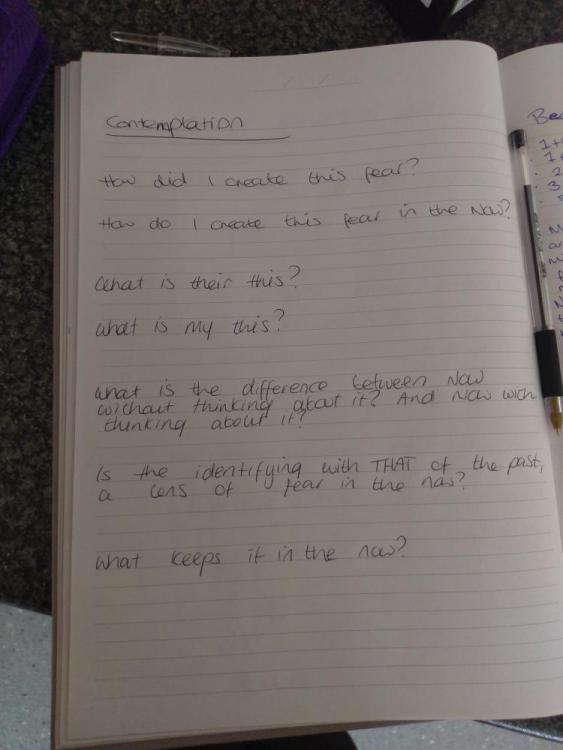 Contemptation
How did I create this fear?
How do I create this fear in the Now?
What is their this?
What is My this?
What is the difference between Now
without thinking about it? And Now with
thinking about it?
Is the identifying with THAT of the past,
a lens of fear in the now?
What keeps it in the now?
Bec
1+
1
2
3